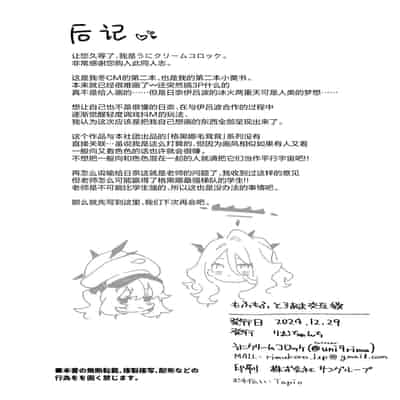 后记
让您久等了，我是うにクリームコロッケ。
非常感谢您购入此同人志。
这是我冬CM的第二本，也是我的第二本小黄书。
本来就已经很难画了一还突然搞3P什么的
真不是给人画的……但是日奈伊吕波的冰火两重天可是人类的梦想……
想让自己也不是很懂的日奈，在与伊吕波合作的过程中
逐渐觉醒轻度调戏抖M的玩法，
我认为这次应该是把我自己想画的东西全部呈现出来了。
这个作品与本社团出品的「格黑娜毛茸茸」系列没有
直接关联…虽说我是这么打算的，但因为画风相似如果有人又看
一般向又看色色的话也许就会很睡。
不想把一般向和色色混在一起的人就请把它们当作平行宇宙吧!!
再怎么说输给日奈这就是老师的问题了，我收到过这样的意见
但老师怎么可能赢得了格黑娜最强梯队的学生!!
老师是不可能比学生强的，所以这也是没办法的事情吧。
那么就先写到这里，我们下次再会吧。
発行日 2024.12.29
発行
うにクリームコロッケ(@uni9rima)
MAIL: rimukoro.jzp@gmail.com
印刷 株式会社サングループ
お手伝い Tapio
■本書の無断転載、複製複写、配布などの
行為をを固く禁じます。